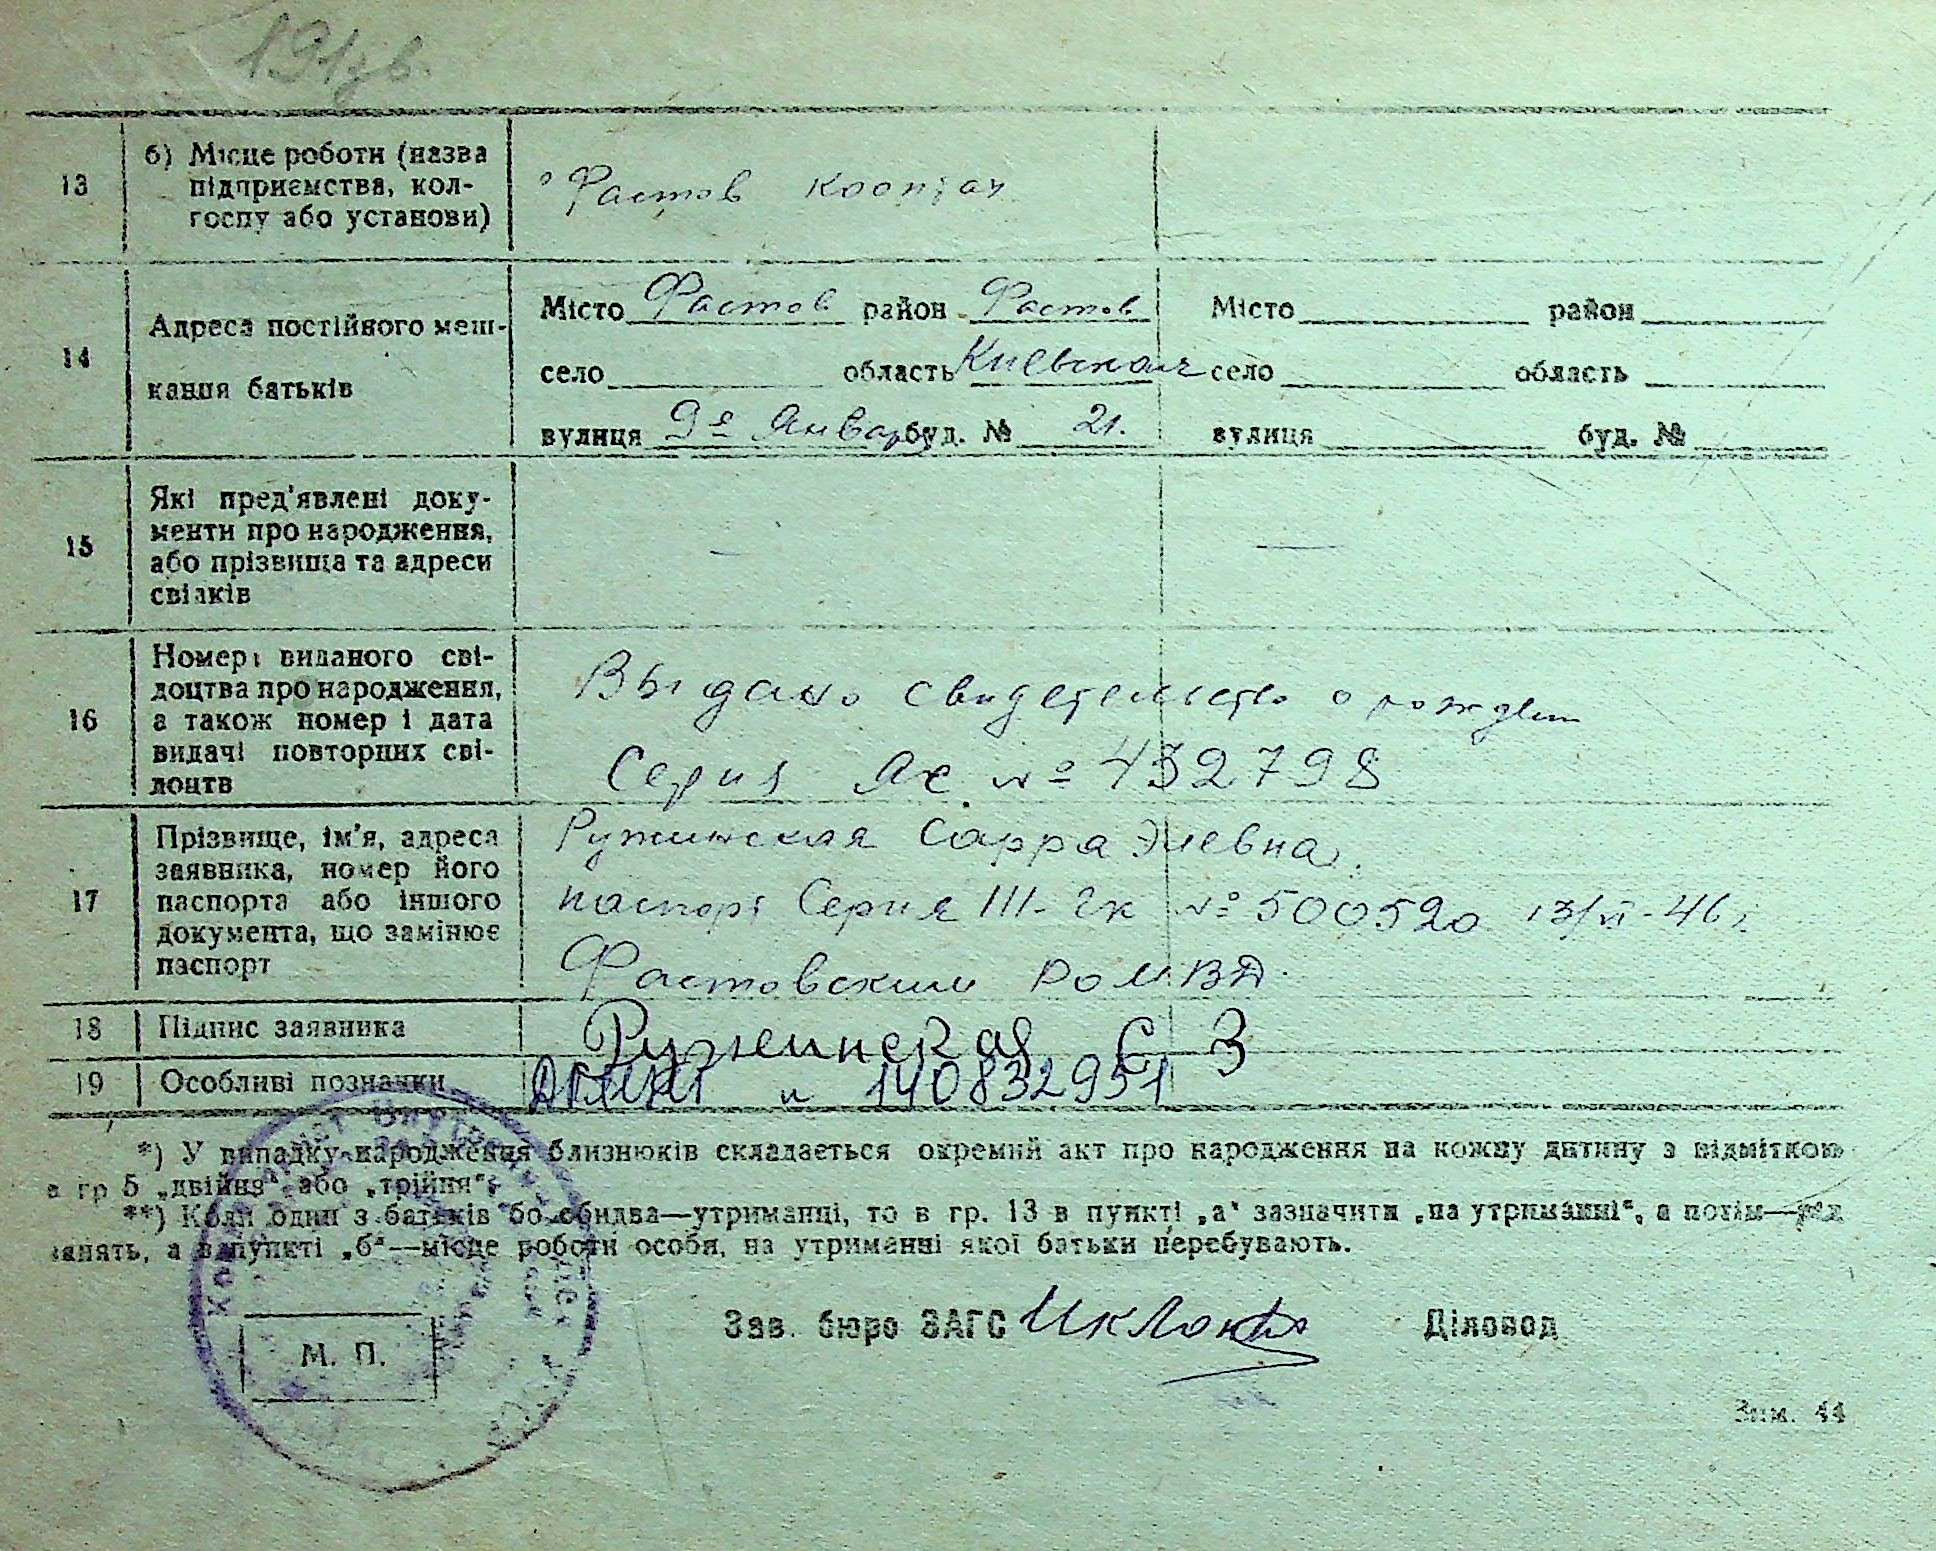 191зв.
13
б) Місце роботи (назва
підприємства, кол-
госпу або установи)
Фастов
14
Адреса постійного меш-
кання батьків
Місто Фастов район Фастов
село область Киевская
вулиця 9е Января буд. № 21.
Місто район
село область
вулиця буд. №
15
Які пред'явлені доку-
менти про народження,
або прізвища та адреси
свідків
—
—
16
Номер виданого сві-
доцтва про народження,
а також номер і дата
видачі повторних сві-
доцтв
Выдано свидетельство о рожден
Серия № 432798
17
Прізвище, ім'я, адреса
заявника, номер його
паспорта або іншого
документа, що замінює
паспорт
Ружинская Сарра
паспорт Серия III- № 500520 13/VI-46г
Фастовским РОМВД.
18
Підпис заявника
Ружинская С З
19
Особливі позначки
140832951
*) У випадку народження близнюків складається окремий акт про народження на кожну дитину з відміткою
в гр 5 „двійня“ або „трійня“.
**) Коли один з батьків бо обидва—утриманці, то в гр. 13 в пункті „а“ зазначити „на утриманні“, а потім—рід
занять, а в пункті „б“—місце роботи особи, на утриманні якої батьки перебувають.
М. П.
Зав. бюро ЗАГС
Діловод
Зам. 44